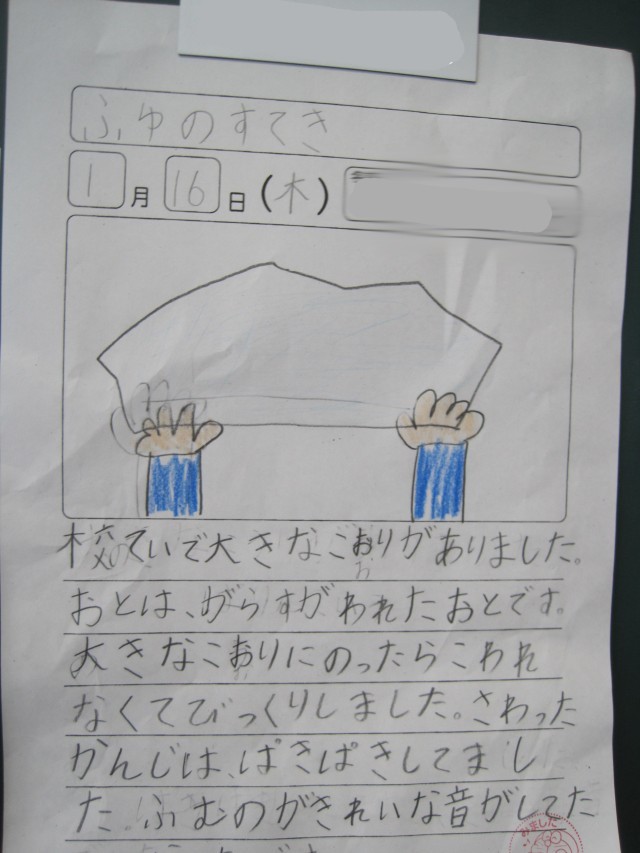 ふゆのすてき
1月16日(木)
校ていで大きなこおりがありました。
おとは、がらすがわれたおとです。
大きなこおりにのったらこわれ
なくてびっくりしました。さわった
かんじは、ぱきぱきしてまし
た。ふむのがきれいな音がしてた
みました